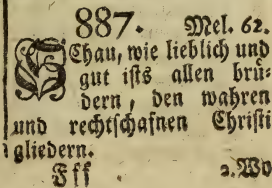 887. Mel. 62.
SChau, wie lieblich und
gut ists allen brü-
dern, den wahren
und rechtschafnen Christi
gliedern.
Fff 2. Wo